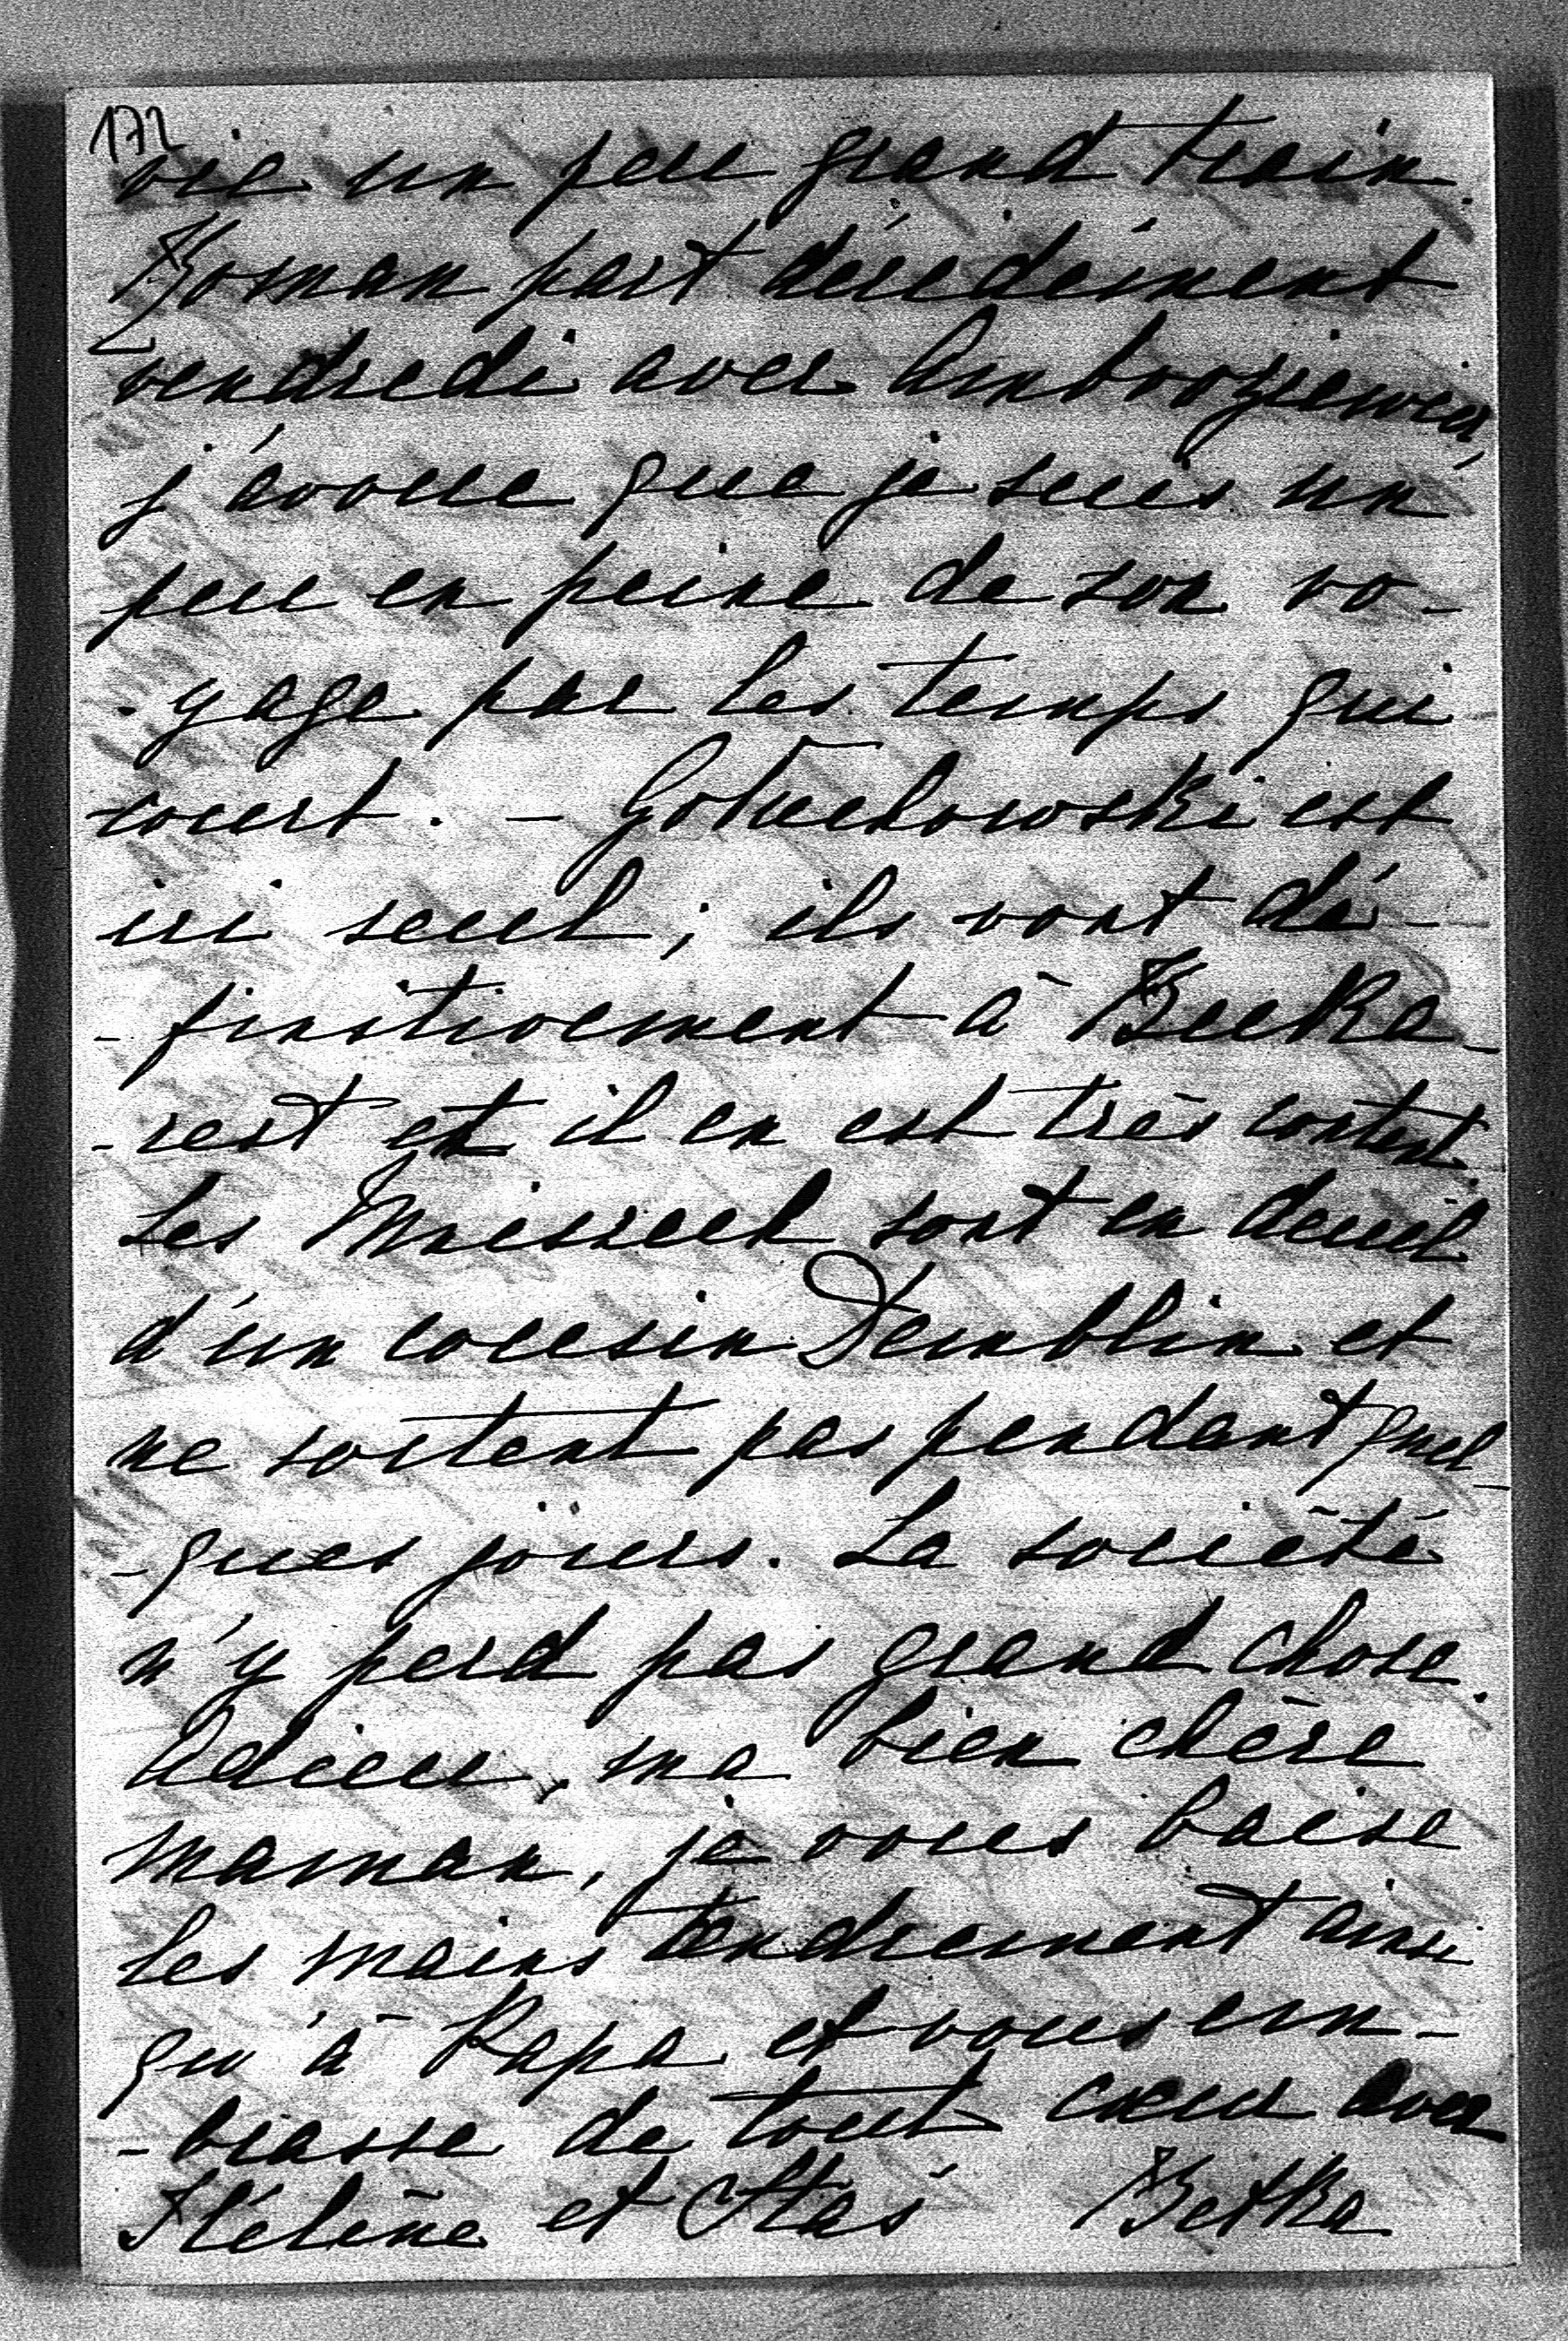 172
vie un peu grand train.
Roman part décidément
vendredi avec Ambroziewicz,
j'avoue que je suis un
peu en peine de son vo-
-yage par les temps qui
court. - Gołuchowski est
ici seul; ils vont dé-
-finitivement à Buka-
-rest et il en est très content.
Les Mrisreck sont en deuil
d'un cousin Demblin et
ne sortent pas pendant quel-
-ques jours. La société
n'y perd pas grand chose.
Adieu, ma bien chère
maman, je vous baise
les mains tendrement ainsi
qu'à Papa et vous em-
-brasse de tout cœur avec
Hélène et Staś Betka